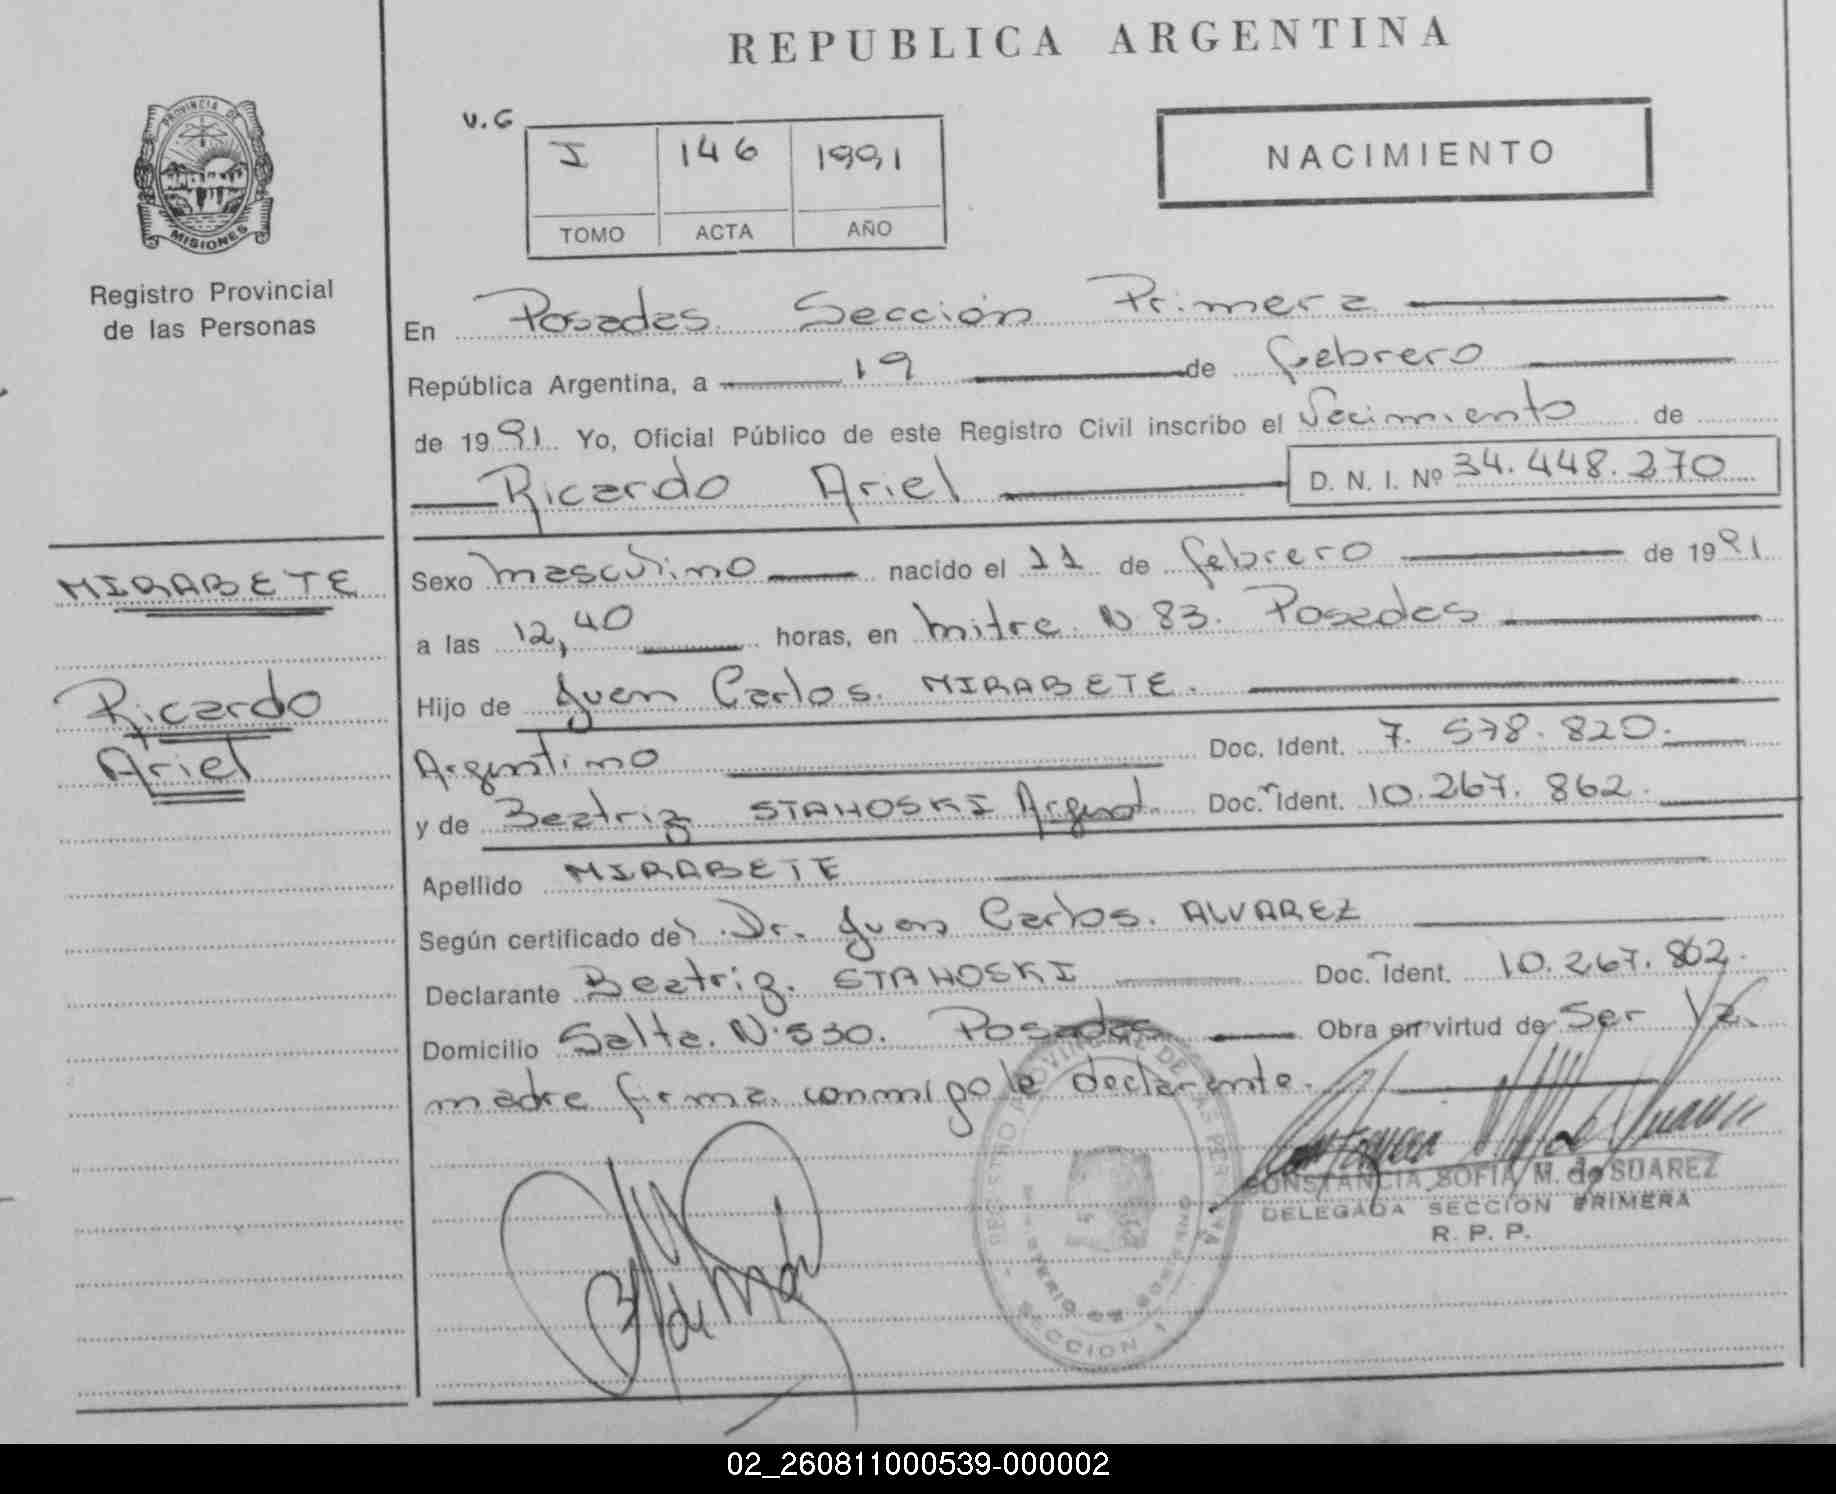 REPUBLICA ARGENTINA
PROVINCIA DE
MISIONES
Registro Provincial
de las Personas
V.G
I 146 1991
TOMO ACTA AÑO
NACIMIENTO
En Posadas Sección Primera
República Argentina, a 19 de febrero
de 1991 Yo, Oficial Público de este Registro Civil inscribo el Nacimiento de
Ricardo Ariel D. N. I. Nº 34.448.270
MIRABETE
Ricardo
Ariel
Sexo masculino nacido el 11 de febrero de 1991
a las 12,40 horas, en Mitre N 83. Posadas
Hijo de Juan Carlos. MIRABETE.
Argentino Doc. Ident. 7. 578. 820.
y de Beatriz STAHOSKI Argent. Doc. Ident. 10.267. 862.
Apellido MIRABETE
Según certificado del Dr. Juan Carlos. ALVAREZ
Declarante Beatriz. STAHOSKI Doc. Ident. 10.267.862.
Domicilio Salta. N.530. Posadas Obra en virtud de Ser la
madre firma conmigo la declarante.
REGISTRO PROVINCIAL DE LAS PERSONAS
MINISTERIO DE GOBIERNO
SECCION 1
CONSTANCIA SOFIA M. de SUAREZ
DELEGADA SECCION PRIMERA
R. P. P.
02_260811000539-000002